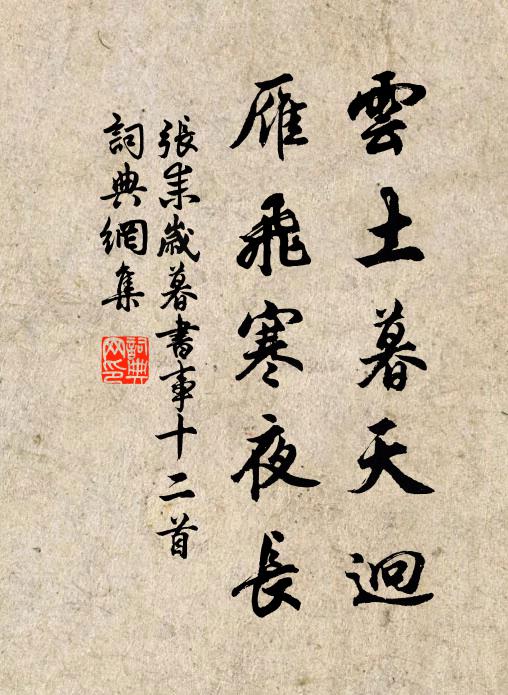 雲土暮天迥
雁飛寒夜長
張耒歲暮書事十二首
詞典網集
詞典
網印